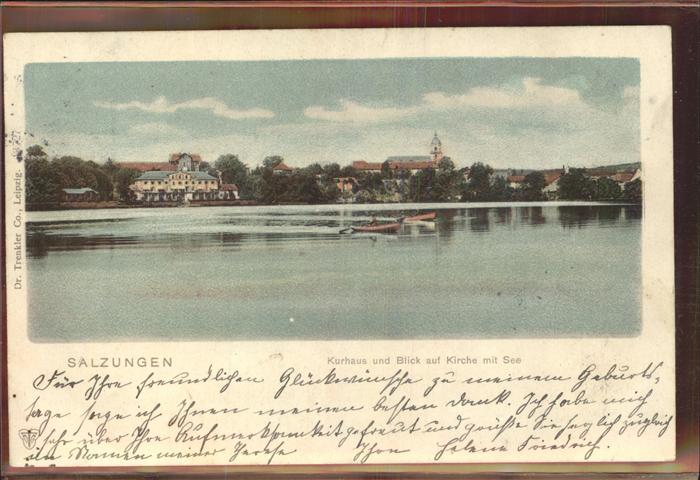 Dr. Trenkler Co., Leipzig.
SALZUNGEN
Kurhaus und Blick auf Kirche mit See
Für Ihre freundlichen Glückwünsche zu meinem Geburts-
tage sage ich Ihnen meinen besten Dank. Ich habe mich
sehr über Ihre Aufmerksamkeit gefreut und grüße Sie herzlich zugleich
im Namen meiner Ihre Helene Friedrich.